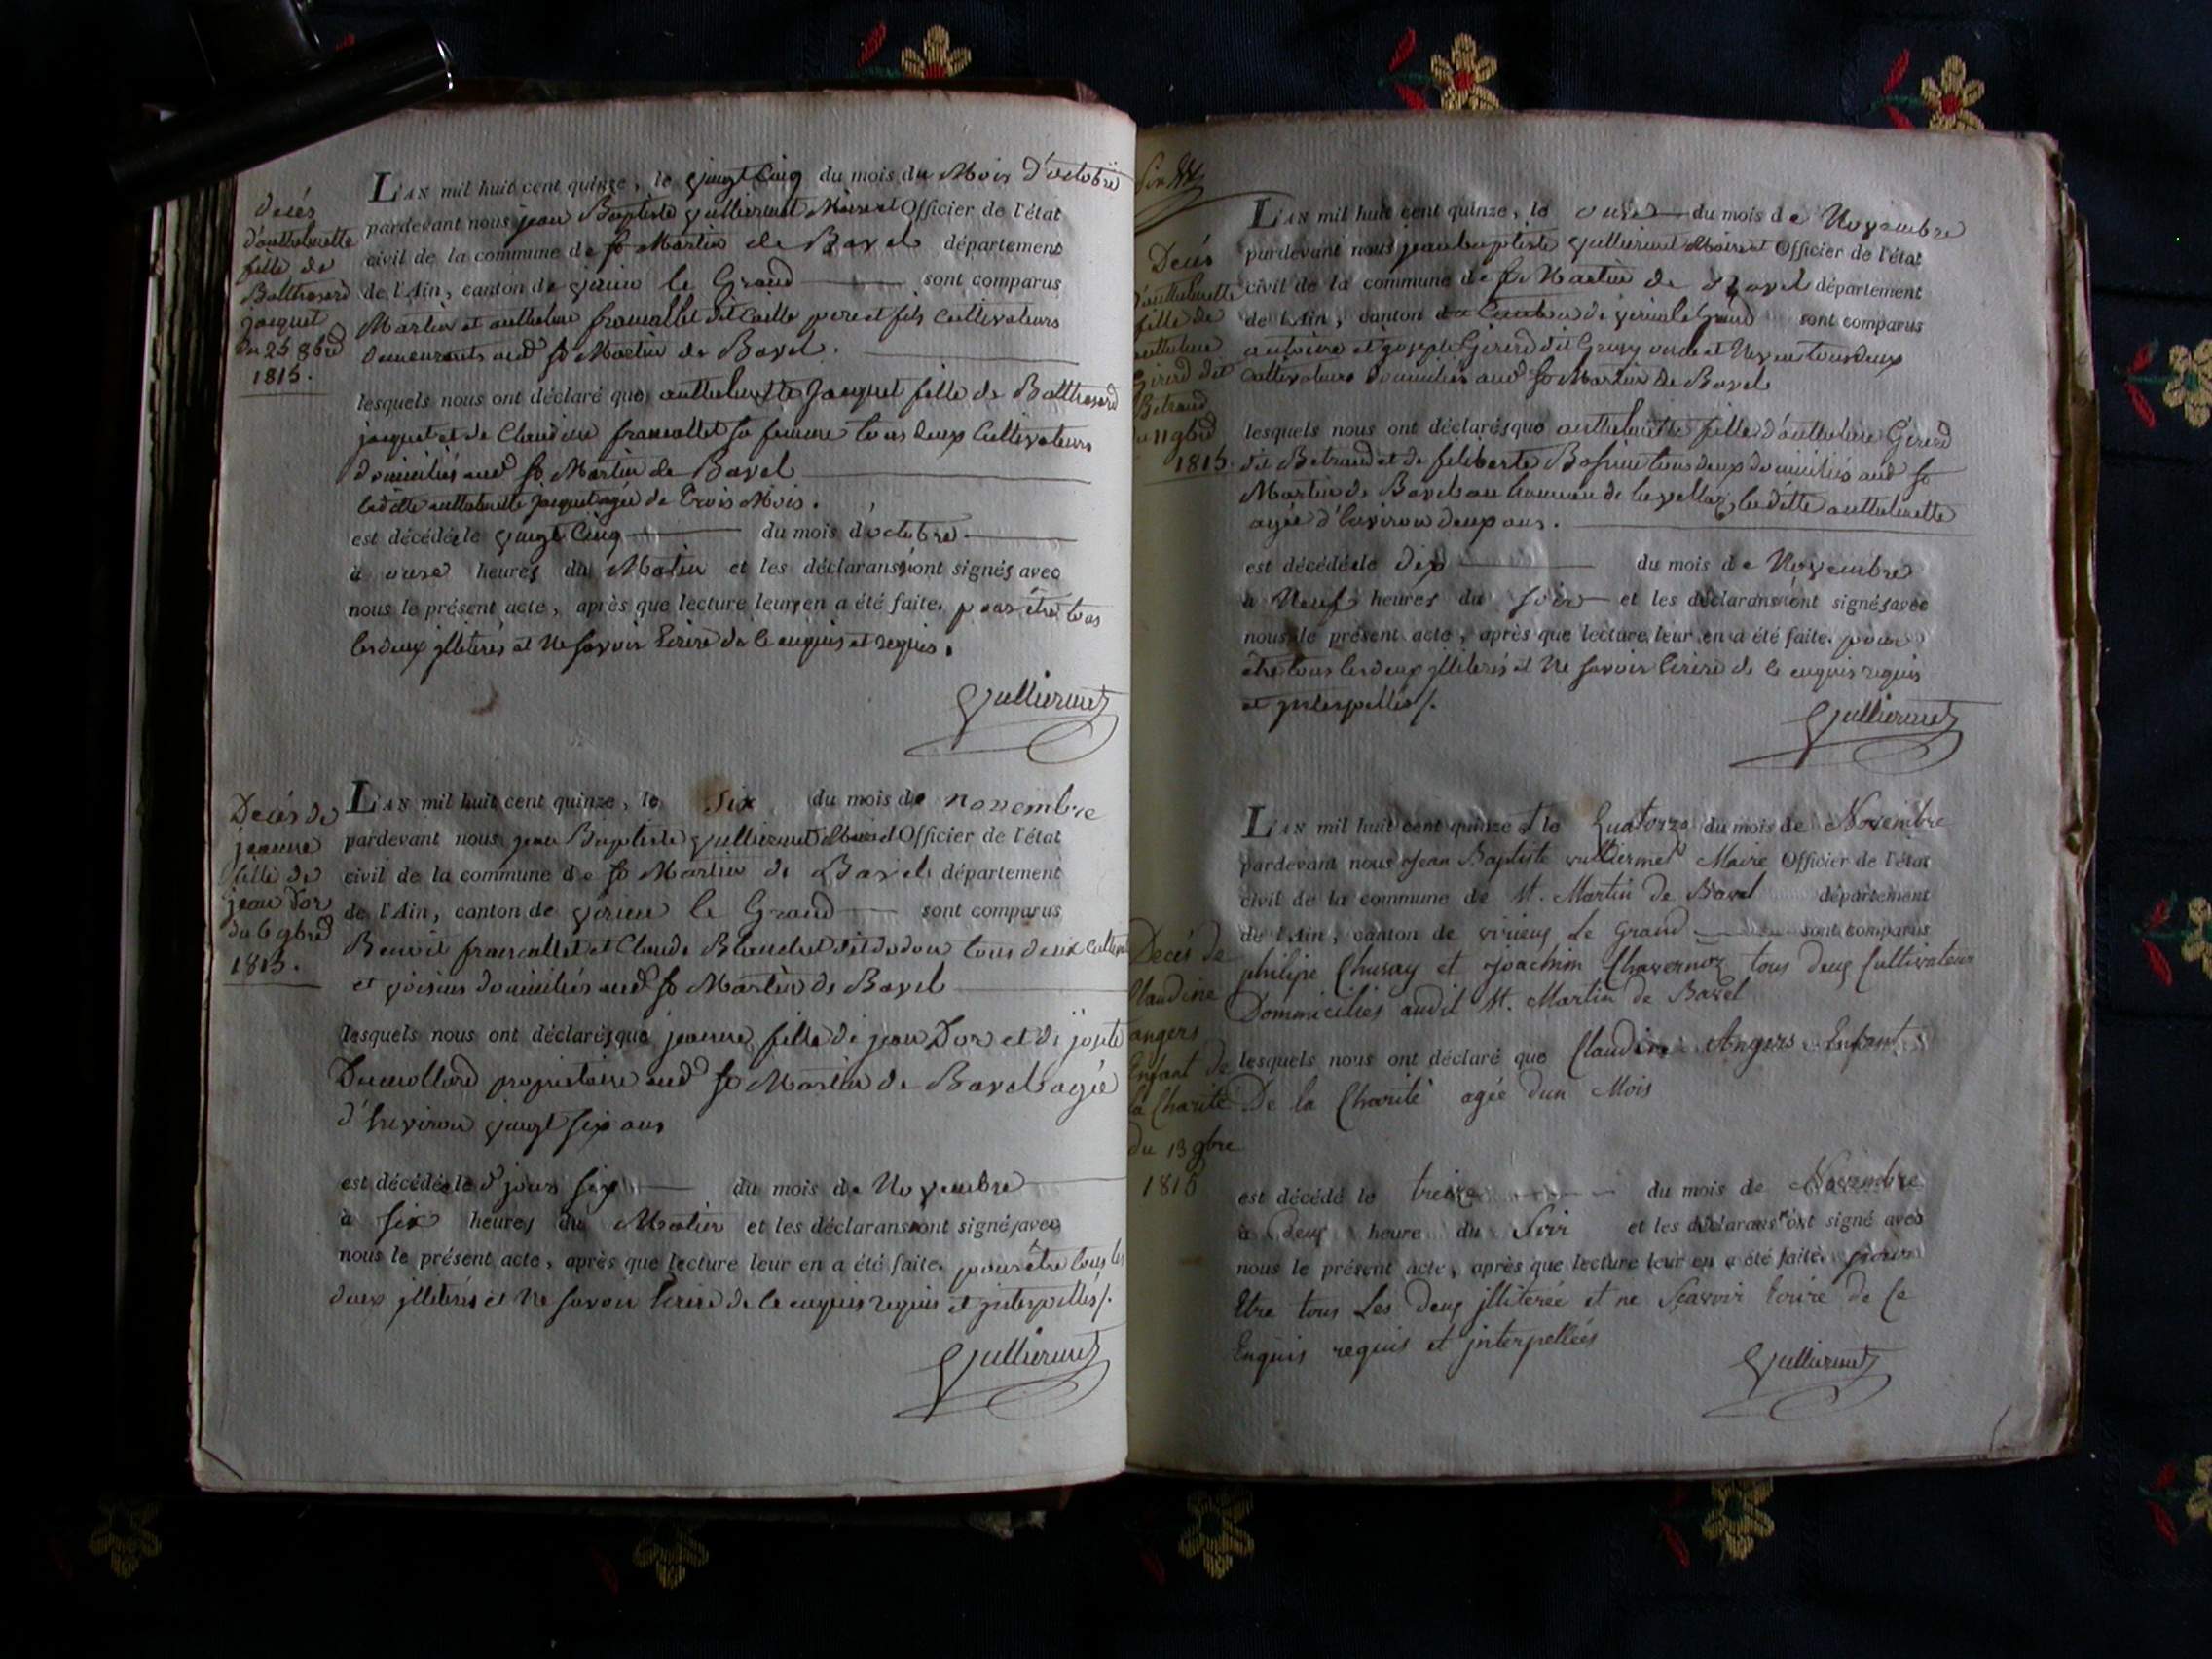 décés
d'anthelmette
fille de
Balthasard
jacquet
du 25 8bre
1815.
L'AN mil huit cent quinze, le vingt Cinq du mois du Mois D'octobre
pardevant nous jean Baptiste vullierme Maire et Officier de l'état
civil de la commune de St Martin de Bavel département
de l'Ain, canton de virieu le Grand sont comparus
Martin et anthelme francallet dit Caille pere et fils Cultivateurs
Demeurants aud St Martin de Bavel.
lesquels nous ont déclaré que anthelmette Jacquet fille de Balthasard
jacquet et de Claudine francallet sa femme tous deux Cultivateurs
domiciliés aud St Martin de Bavel
ladite anthelmette jacquet agée de trois Mois.
est décédée le vingt Cinq du mois d'octobre
à onze heures du Matin et les déclarans n'ont signés avec
nous le présent acte, après que lecture leurs en a été faite. pour être tous
les deux jlliterés et Ne savoir Ecrire de le enquis et requis.
Vulliermet
Decés de
jeanne
fille de
jean Dor
du 6 9bre
1815.
L'AN mil huit cent quinze, le Six du mois de novembre
pardevant nous jean Baptiste vulliermet Maire et Officier de l'état
civil de la commune de St Martin de Bavel département
de l'Ain, canton de virieu le Grand sont comparus
Benoit francallet et Claude Blanchet dit dodon tous deux
et voisins domiciliés aud St Martin de Bavel
lesquels nous ont déclarés que jeanne fille de jean Dor et de
Dumollard propriétaire aud St Martin de Bavel agée
d'Environ vingt six ans
est décédée le d jour six du mois de Novembre
à six heures du Matin et les déclarans n'ont signés avec
nous le présent acte, après que lecture leur en a été faite. pour être tous les
deux jlliterés et Ne savoir Ecrire de le enquis requis et jnterpellés/.
Vulliermet
Decés
d'anthelmette
fille de
anthelme
Girerd dit
Betrand
du 11 9bre
1815.
L'AN mil huit cent quinze, le onze du mois de Novembre
pardevant nous jean baptiste vulliermet Maire et Officier de l'état
civil de la commune de St Martin de Bavel département
de l'Ain, canton de virieu le Grand sont comparus
antoine et joseph Girerd dit Grusy oncle et Neveu tous deux
Cultivateurs domiciliés aud St Martin de Bavel
lesquels nous ont déclarés que anthelmette fille d'anthelme Girerd
dit Betrand et de filiberte tous deux domiciliés aud St
Martin de Bavel au hameau de ladite anthelmette
agée d'Environ deux ans.
est décédée le dix du mois de Novembre
à Neuf heures du soir et les déclarans n'ont signés avec
nous le présent acte, après que lecture leur en a été faite. pour
être tous les deux jlliterés et Ne savoir Ecrire de le enquis requis
et jnterpellés/.
Vulliermet
Decés de
Claudine
angers
Enfant de
la Charité
du 13 9bre
1815
L'AN mil huit cent quinze et le Quatorze du mois de Novembre
pardevant nous Jean Baptiste vulliermet Maire Officier de l'état
civil de la commune de St. Martin de Bavel département
de l'Ain, canton de virieux Le Grand sont comparus
philipe Chusay et Joachim Chavernoz tous deux Cultivateur
Dommiciliés audit St. Martin de Bavel
lesquels nous ont déclaré que Claudine Angers Enfant
De la Charité agée dun Mois
est décédé le treize du mois de Novembre
à deux heure du Soir et les déclarans n'ont signé avec
nous le présent acte, après que lecture leur en a été faite. pour
Etre tous Les deux jlliterée et ne Sçavoir Ecrire de Ce
Enquis requis et jnterpellées
Vulliermet